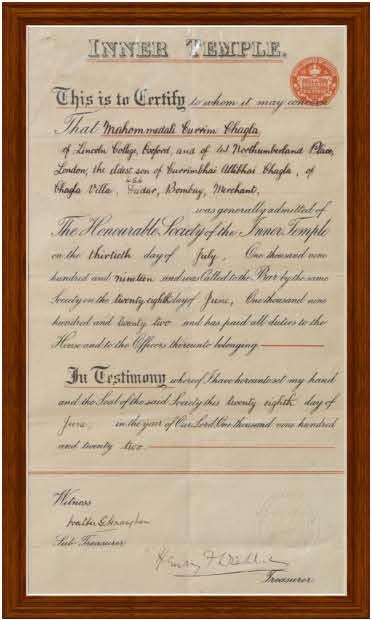 INNER TEMPLE.
This is to Certify to whom it may concern
That Mahommedali Currim Chagla
of Lincoln College, Oxford, and of 41 Northumberland Place,
London, the eldest son of Currimbhai Allibhai Chagla, of
Chagla Villa, Dadar, Bombay, Merchant,
was generally admitted of
The Honourable Society of the Inner Temple
on the thirtieth day of July, One thousand nine
hundred and nineteen and was Called to the Bar by the same
Society on the twenty eighth day of June, One thousand nine
hundred and twenty two and has paid all duties to the
House and to the Officers thereunto belonging
In Testimony whereof I have hereunto set my hand
and the Seal of the said Society this twenty eighth day of
June, in the year of Our Lord One thousand nine hundred
and twenty two.
Witness
Sub Treasurer
Henry F
Treasurer